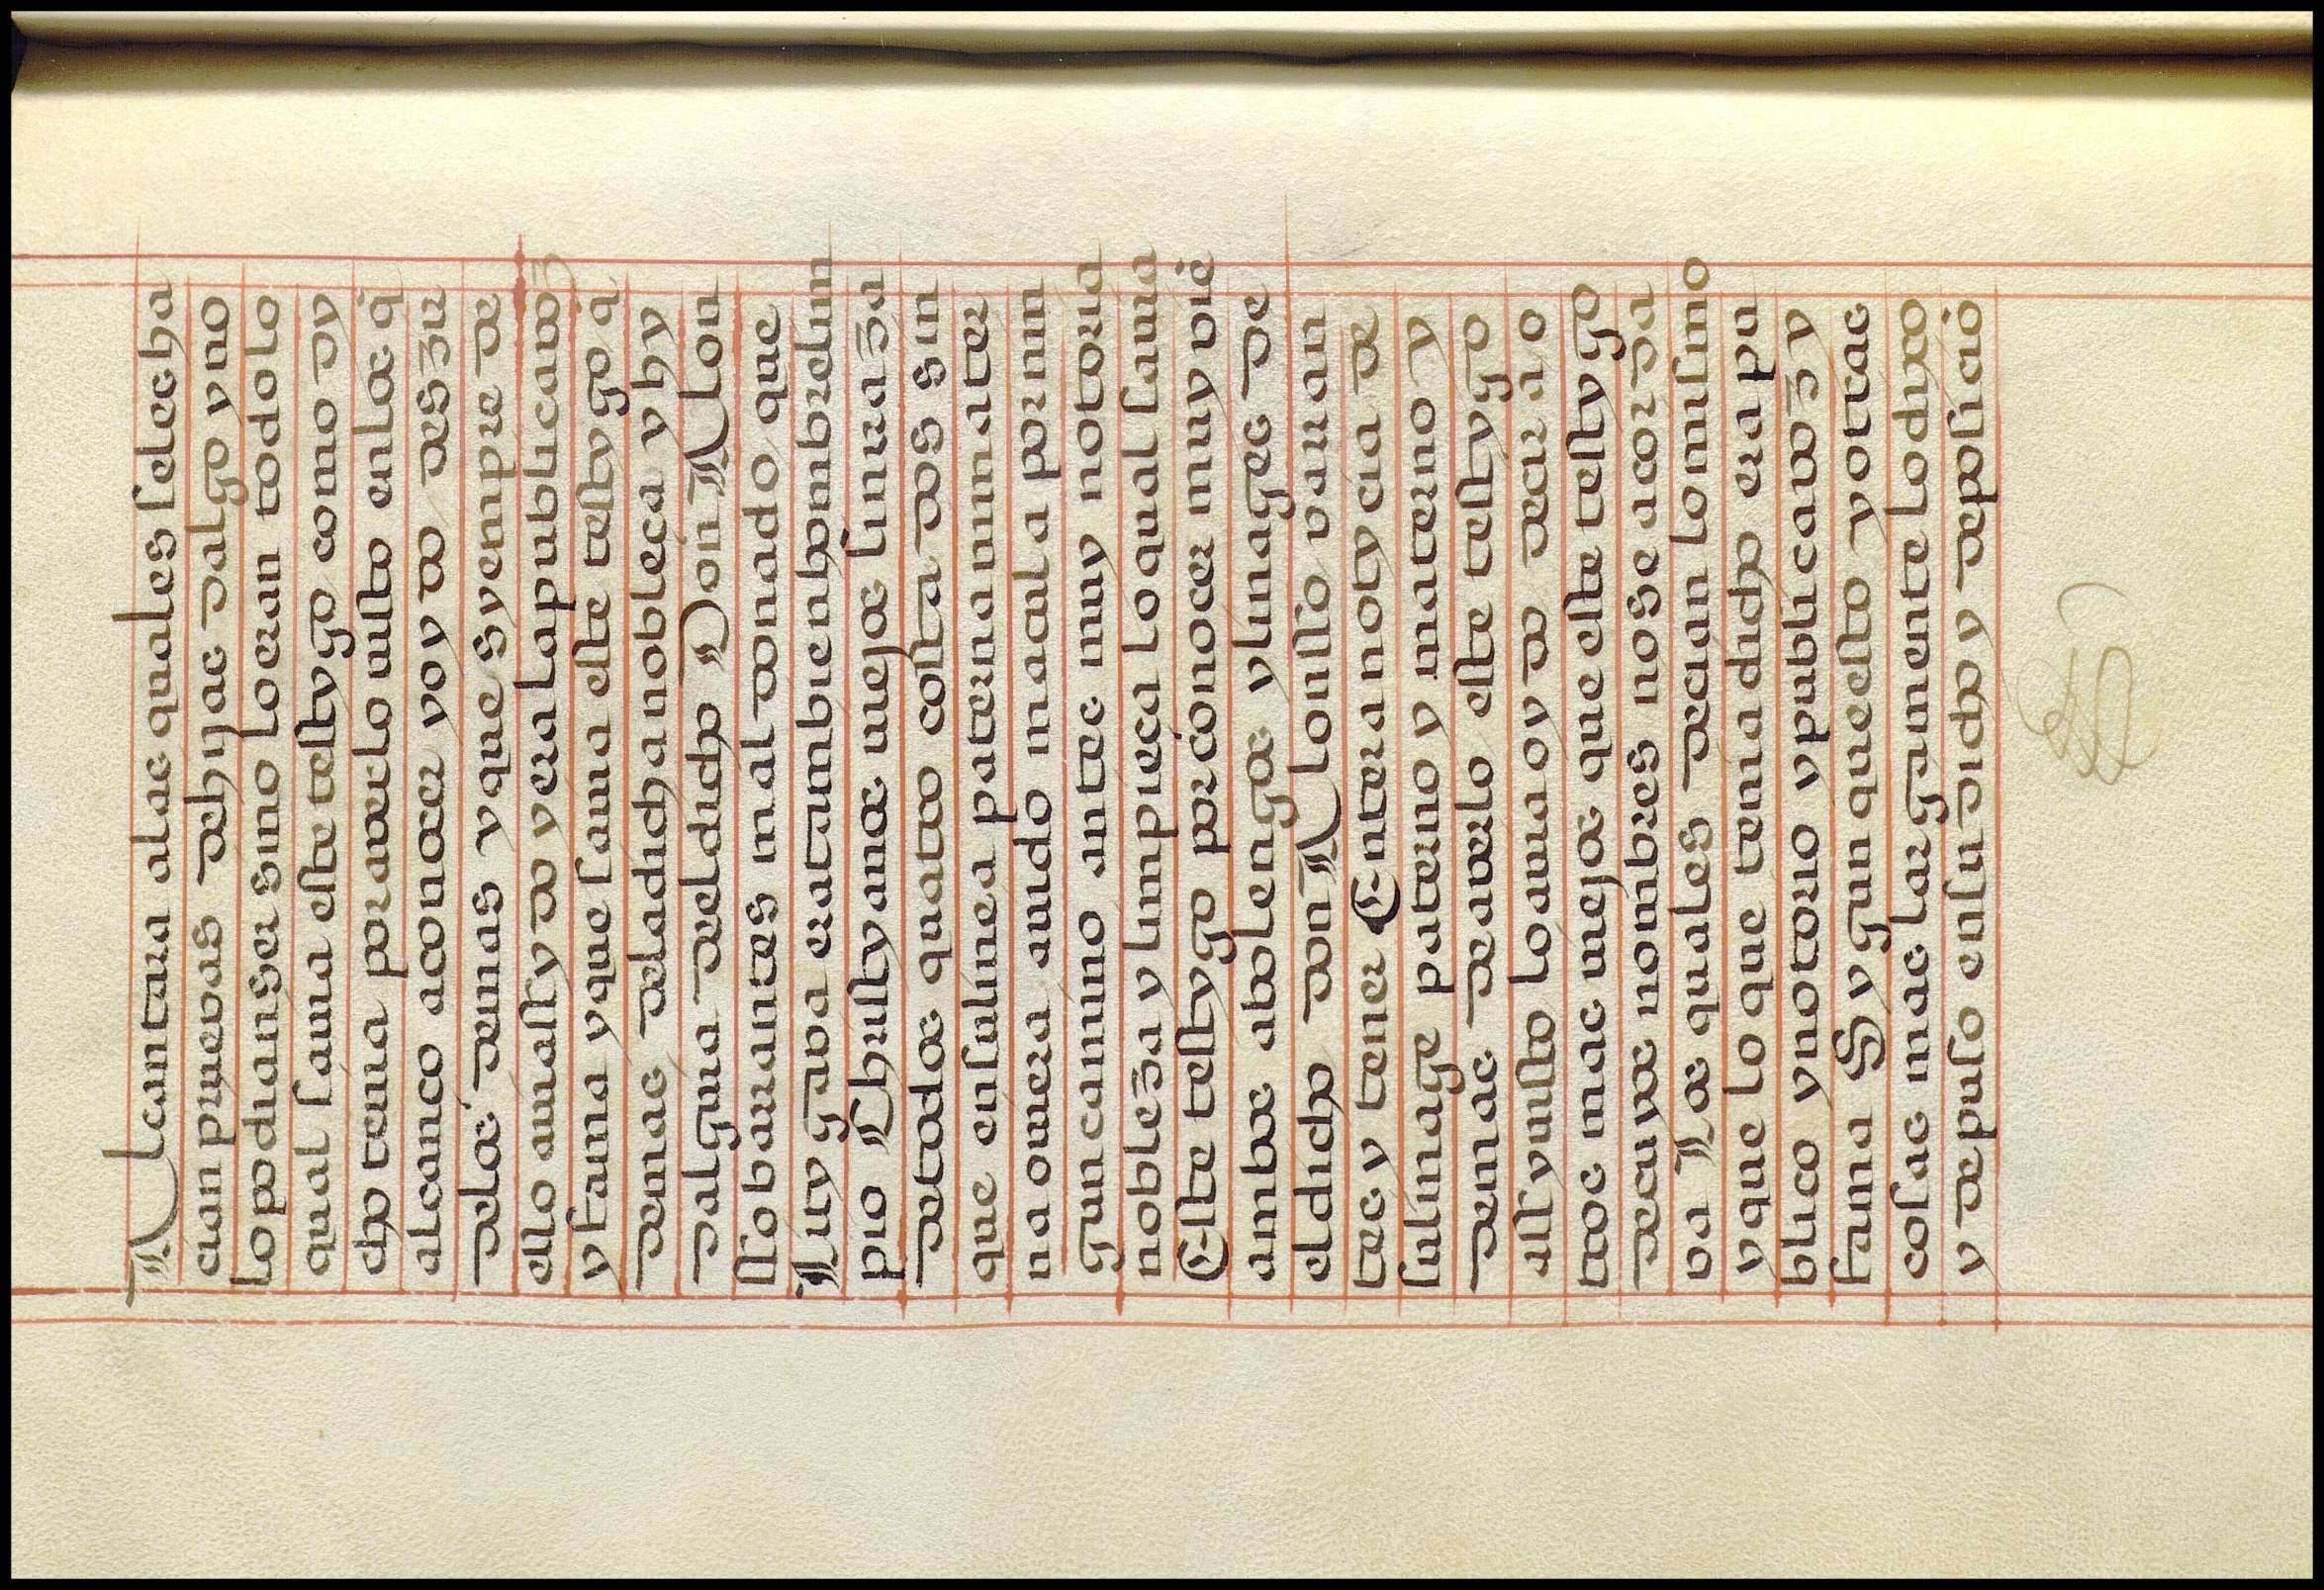 Alcantara alas quales se les ha
cian pruevas de hijos dalgo y no
lo podian ser sino lo eran todo lo
qual savia este testygo como dy
cho tenia por averlo visto en los q̃
alcanco aconocer y oydo dezir
delos demas y que syempre de
ello avia sydo y era la publica voz
y fama y que savia este testygo q̃
demas dela dicha nobleca y hy
dalguia del dicho Don Alon
sso barantes maldonado que
Lity gava era tambien hombre lim
pio Christyano viejo sin raza
de todos quatro costados sin
que en su linea paterna ni mater
na oviera avido macula por nin
gun camino antes muy notoria
nobleza y limpieca lo qual savia
Este testygo por conocer muy viẽ
ambos abolengos y linages de
el dicho don Alonsso varan
tes y tener Entera noticia de
su linage paterno y materno y
demas de averlo este testygo
assy visto lo avia oydo decir a o
tros mas viejos que este testygo
de cuyos nombres no se acorda
va Los quales decian lo mismo
y que lo que tenia dicho era pu
blico y notorio y publica voz y
fama Sygun que esto y otras
cosas mas largamente lo dixo
y depuso en su dicho y deposiciõ